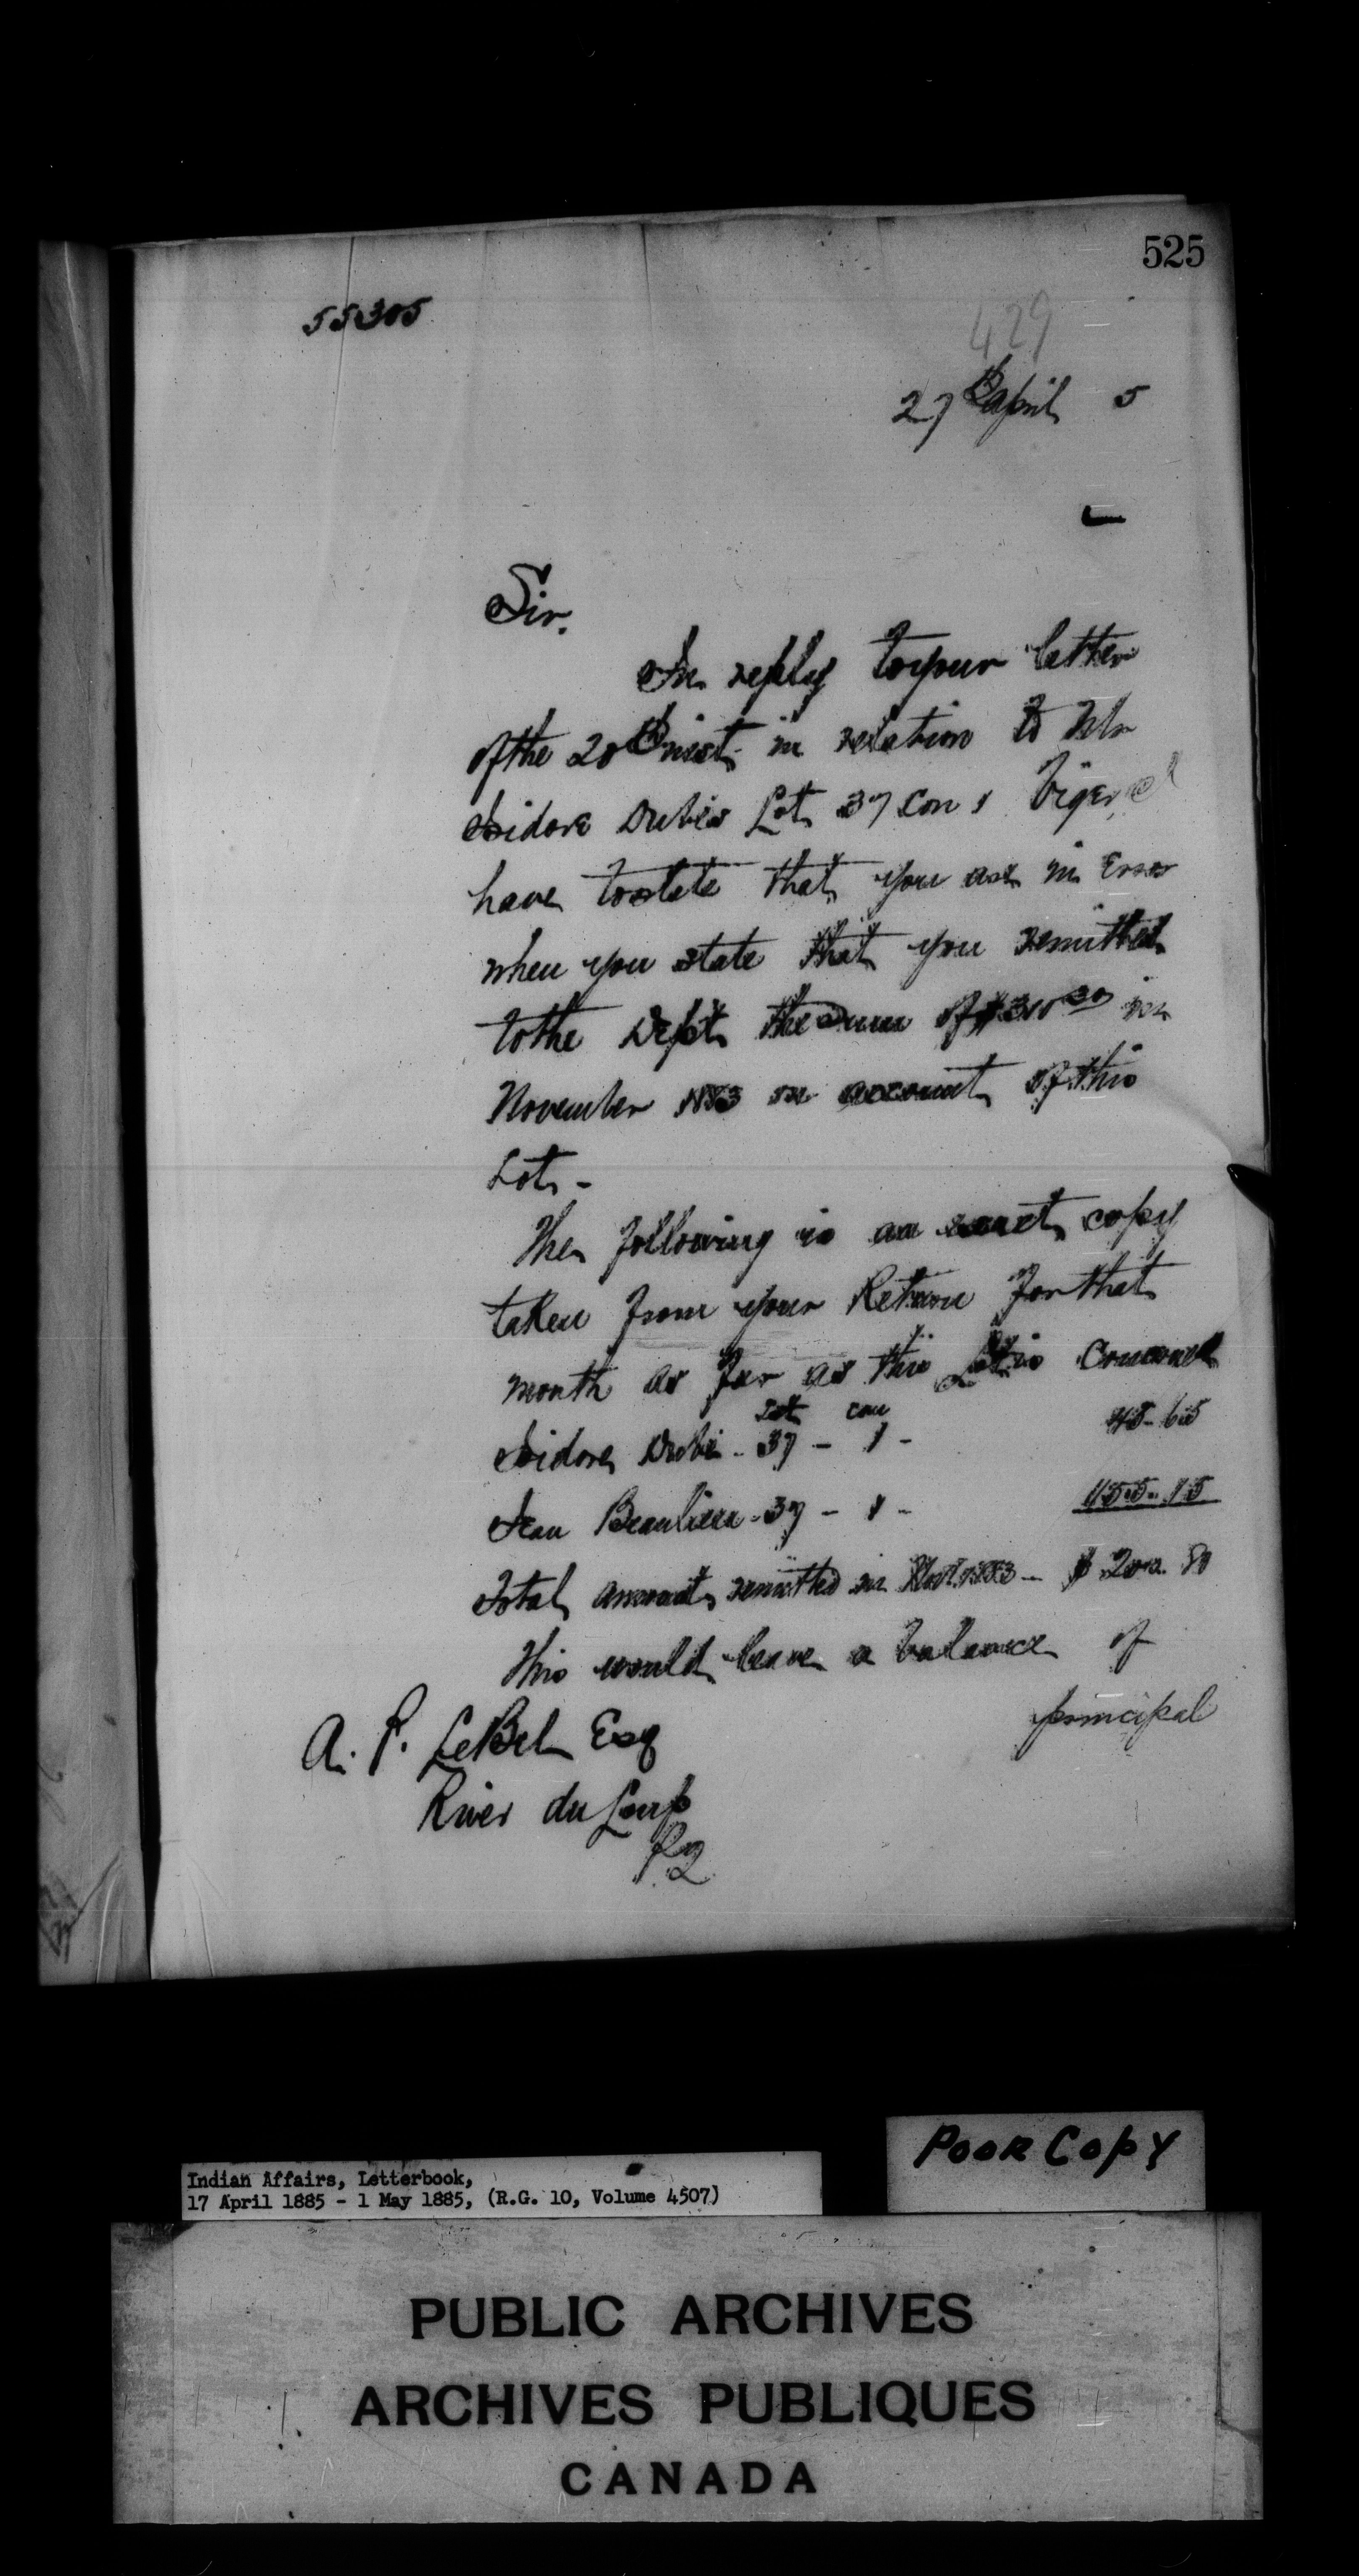 525
55305
429
27th April 5
Sir,
In reply to your letter
of the 20th inst. in relation to Mr
Isidore Dubé's Lot 37 Con 1 Viger, I
have to state that you are in Error
when you state that you remitted
to the Dept. the sum of in
November 1883 on account of this
Lot -
The following is an exact copy
taken from your Return for that
month as far as this Lot is Concerned
Lot con
Isidore Dubé - 37 - 1 - 45.65
Jean Beaulieu - 37 - 1 - 155.15
Total amount remitted in Nov. 1883 - $ 200.80
This would leave a balance of
principal
A. P. LeBel Esq
River du Loup
P.Q.
Poor Copy
Indian Affairs, Letterbook,
17 April 1885 - 1 May 1885, (R.G. 10, Volume 4507)
PUBLIC ARCHIVES
ARCHIVES PUBLIQUES
CANADA